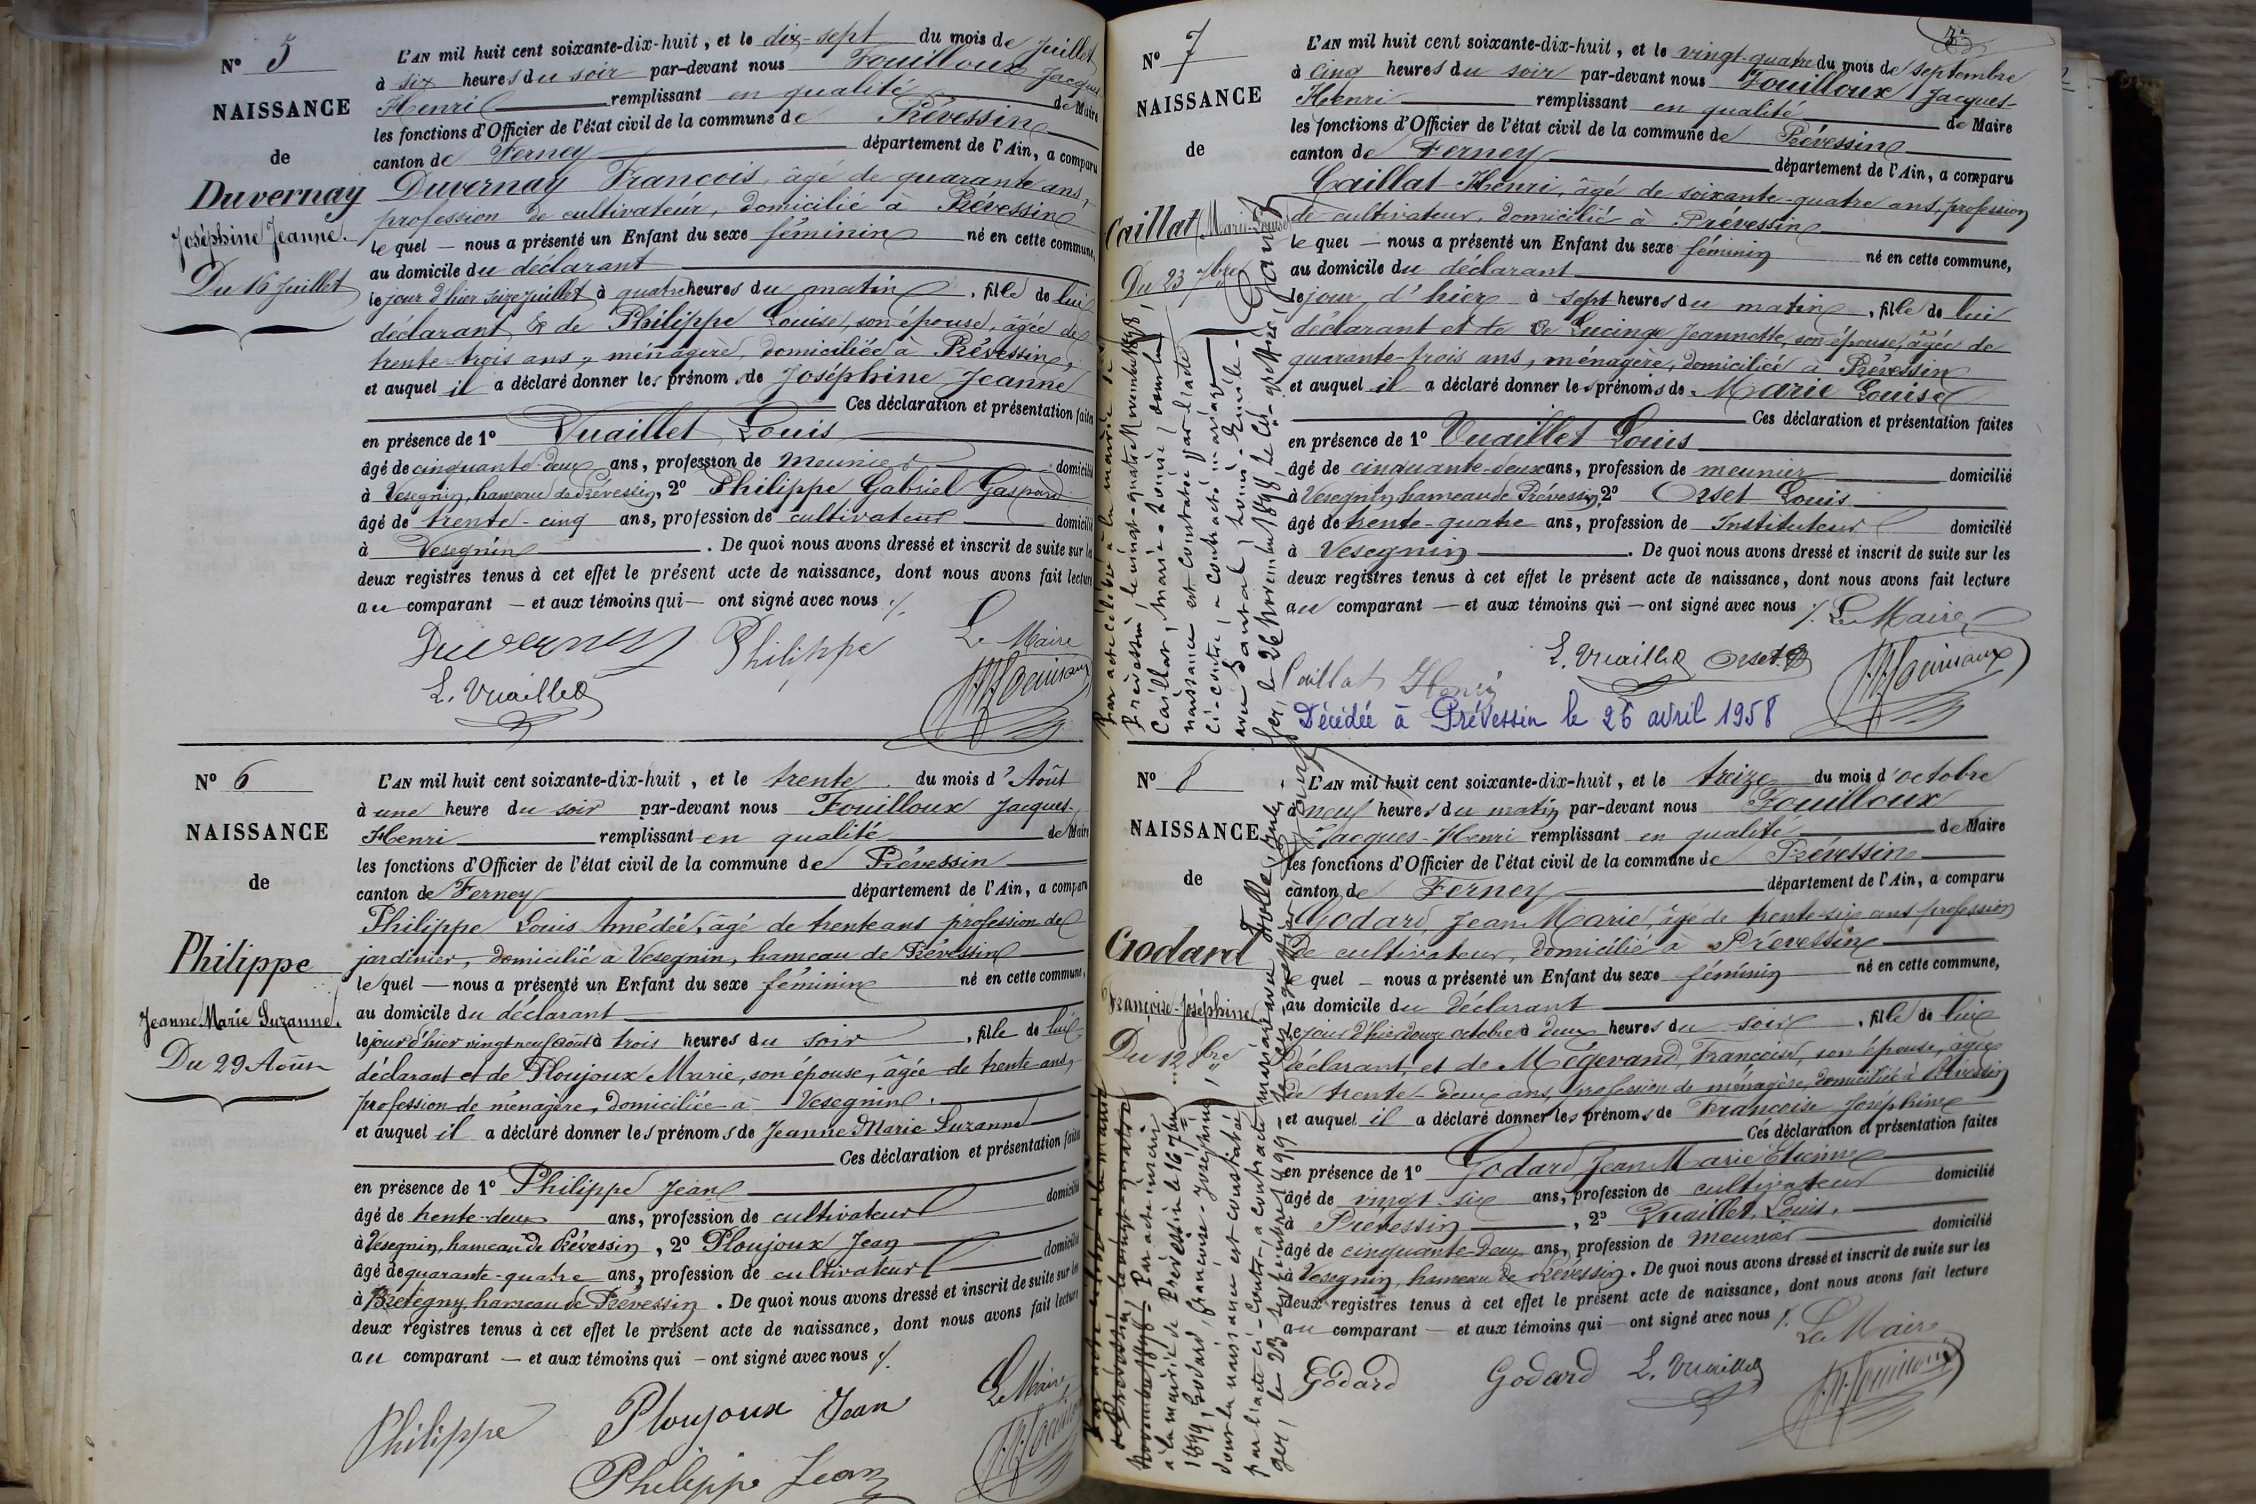 N° 5
NAISSANCE
de
Duvernay
Joséphine Jeanne.
Du 16 Juillet
L'AN mil huit cent soixante-dix-huit, et le dix-sept du mois de Juillet
à six heures du soir par-devant nous Fouilloux Jacques
Henri remplissant en qualité de Maire
les fonctions d'Officier de l'état civil de la commune de Prévessin
canton de Ferney département de l'Ain, a comparu
Duvernay François, âgé de quarante ans,
profession de cultivateur, domicilié à Prévessin
le quel — nous a présenté un Enfant du sexe féminin né en cette commune,
au domicile du déclarant
le jour d'hier seize juillet à quatre heures du matin, fille de lui
déclarant & de Philippe Louise, son épouse, âgée de
trente-trois ans, ménagère, domiciliée à Prévessin,
et auquel il a déclaré donner les prénoms de Joséphine Jeanne
Ces déclaration et présentation faites
en présence de 1° Vuaillet Louis
âgé de cinquante-deux ans, profession de meunier domicilié
à Vesegnin, hameau de Prévessin, 2° Philippe Gabriel Gaspard
âgé de trente-cinq ans, profession de cultivateur domicilié
à Vesegnin. De quoi nous avons dressé et inscrit de suite sur les
deux registres tenus à cet effet le présent acte de naissance, dont nous avons fait lecture
au comparant — et aux témoins qui — ont signé avec nous ./.
Duvernay Philippe Le Maire
L. Vuaillet
N° 6
NAISSANCE
de
Philippe
Jeanne Marie Suzanne.
Du 29 Août
L'AN mil huit cent soixante-dix-huit, et le trente du mois d'Août
à une heure du soir par-devant nous Fouilloux Jacques-
Henri remplissant en qualité de Maire
les fonctions d'Officier de l'état civil de la commune de Prévessin
canton de Ferney département de l'Ain, a comparu
Philippe Louis Amédée, âgé de trente ans profession de
jardinier, domicilié à Vesegnin, hameau de Prévessin
le quel — nous a présenté un Enfant du sexe féminin né en cette commune,
au domicile du déclarant
le jour d'hier vingt neuf août à trois heures du soir, fille de lui
déclarant et de Ploujoux Marie, son épouse, âgée de trente ans,
profession de ménagère, domiciliée à Vesegnin.
et auquel il a déclaré donner les prénoms de Jeanne Marie Suzanne
Ces déclaration et présentation faites
en présence de 1° Philippe Jean domicilié
âgé de trente-deux ans, profession de cultivateur
à Vesegnin, hameau de Prévessin, 2° Ploujoux Jean
âgé de quarante-quatre ans, profession de cultivateur domicilié
à Bretegny hameau de Prévessin. De quoi nous avons dressé et inscrit de suite sur les
deux registres tenus à cet effet le présent acte de naissance, dont nous avons fait lecture
au comparant — et aux témoins qui — ont signé avec nous ./.
Philippe Ploujoux Jean Le Maire
Philippe Jean
N° 7
NAISSANCE
de
Caillat Marie-Louise
Du 23 7bre
L'AN mil huit cent soixante-dix-huit, et le vingt-quatre du mois de septembre
à cinq heures du soir par-devant nous Fouilloux Jacques-
Henri remplissant en qualité de Maire
les fonctions d'Officier de l'état civil de la commune de Prévessin
canton de Ferney département de l'Ain, a comparu
Caillat Henri, âgé de soixante-quatre ans, profession
de cultivateur, domicilié à Prévessin
le quel — nous a présenté un Enfant du sexe féminin né en cette commune,
au domicile du déclarant
le jour d'hier à sept heures du matin, fille de lui
déclarant et de De Lucinge Jeannette, son épouse, âgée de
quarante-trois ans, ménagère, domiciliée à Prévessin
et auquel il a déclaré donner les prénoms de Marie Louise
Ces déclaration et présentation faites
en présence de 1° Vuaillet Louis
âgé de cinquante-deux ans, profession de meunier domicilié
à Vesegnin hameau de Prévessin, 2° Orset Louis
âgé de trente-quatre ans, profession de Instituteur domicilié
à Vesegnin. De quoi nous avons dressé et inscrit de suite sur les
deux registres tenus à cet effet le présent acte de naissance, dont nous avons fait lecture
au comparant — et aux témoins qui — ont signé avec nous ./. Le Maire
L. Vuaillet Orset
Caillat Henri
Décédée à Prévessin le 26 avril 1958
Par acte célébré à la mairie de
Prévessin, le vingt-quatre Novembre 1898,
Caillat, Marie-Louise, dont la
naissance est constatée par l'acte
ci-contre, a contracté mariage
avec
le 26 Novembre 1898, Le
N° 8
NAISSANCE
de
Godard
Françoise-Joséphine
Du 12 8bre
L'AN mil huit cent soixante-dix-huit, et le treize du mois d'octobre
à neuf heures du matin par-devant nous Fouilloux
Jacques-Henri remplissant en qualité de Maire
les fonctions d'Officier de l'état civil de la commune de Prévessin
canton de Ferney département de l'Ain, a comparu
Godard, Jean Marie, âgé de trente-six ans profession
de cultivateur, domicilié à Prévessin
le quel — nous a présenté un Enfant du sexe féminin né en cette commune,
au domicile du déclarant
le jour d'hier douze octobre à deux heures du soir, fille de lui
déclarant, et de Mégevand, Françoise, son épouse, âgée
de trente-deux ans, profession de ménagère, domiciliée à Prévessin
et auquel il a déclaré donner les prénoms de Françoise Joséphine
Ces déclaration et présentation faites
en présence de 1° Godard Jean Marie Etienne domicilié
âgé de vingt-six ans, profession de cultivateur
à Prévessin, 2° Vuaillet, Louis. domicilié
âgé de cinquante-deux ans, profession de meunier
à Vesegnin, hameau de Prévessin. De quoi nous avons dressé et inscrit de suite sur les
deux registres tenus à cet effet le présent acte de naissance, dont nous avons fait lecture
au comparant — et aux témoins qui — ont signé avec nous ./. Le Maire
Godard Godard L. Vuaillet
Par acte inscrit
à la mairie de Prévessin le 16 7bre
1899, Godard, Françoise-Joséphine,
dont la naissance est constatée
par l'acte ci-contre, a contracté mariage avec
le 23 septembre 1899